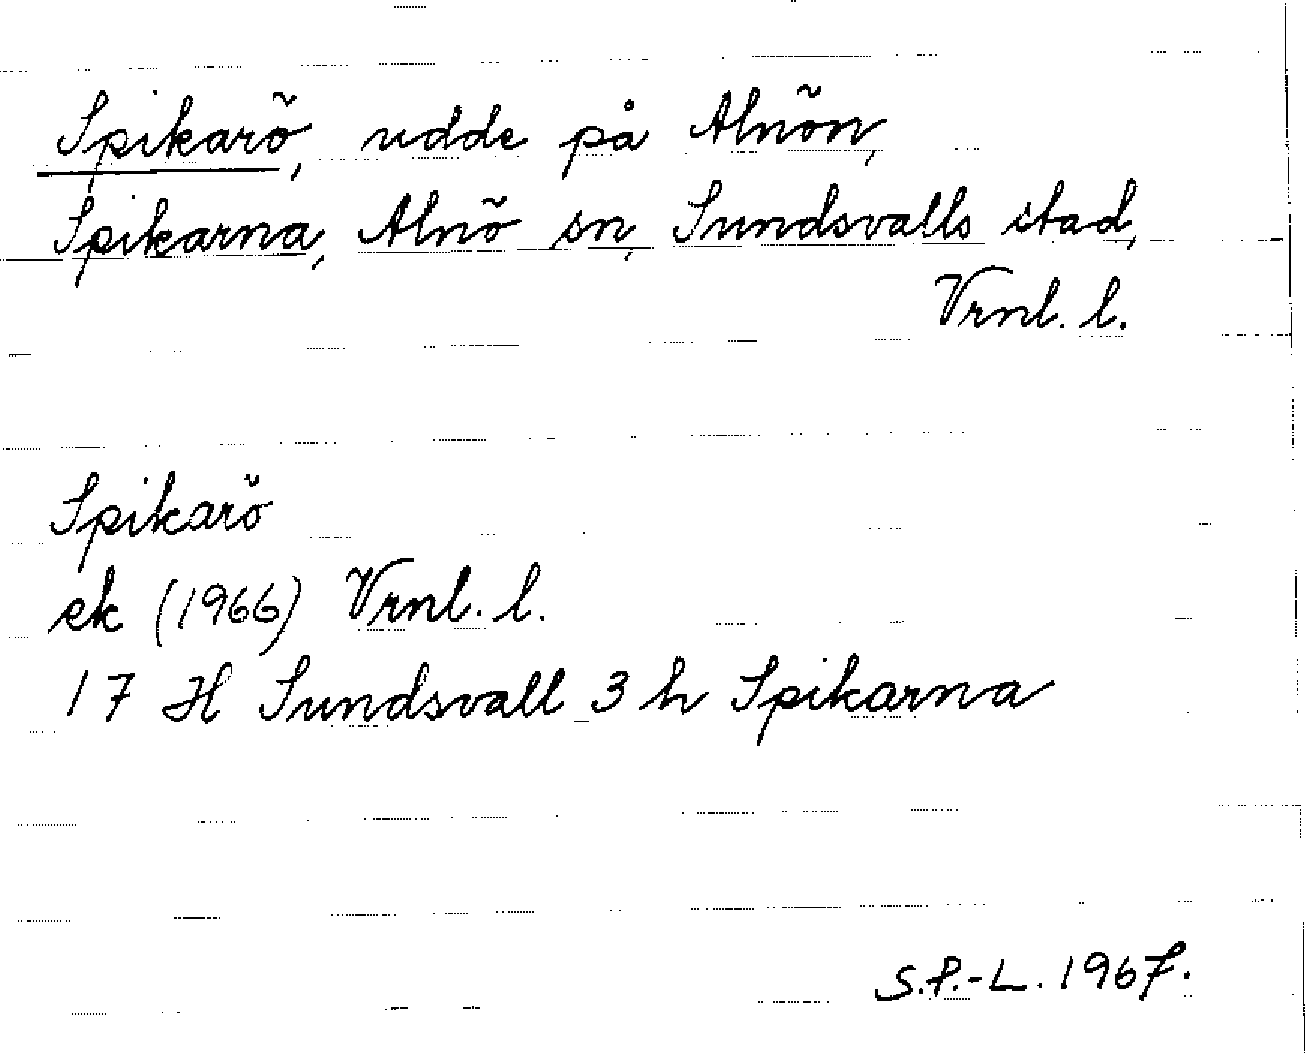 Spikarö, udde på Alnön,
Spikarna, Alnö sn, Sundsvalls stad,
Vrnl. l.
Spikarö
ek (1966) Vrnl. l.
17 H Sundsvall 3 h Spikarna
S.P.-L. 1967.